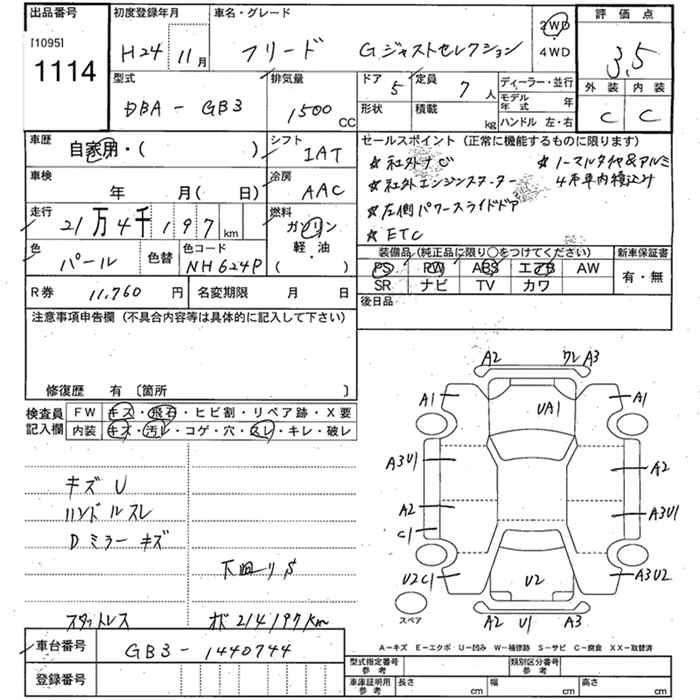 出品番号 初度登録年月 車名・グレード 2WD 評価点
[1095] 1114 H24 11月 フリード Gジャストセレクション 4WD 3.5
型式 排気量 ドア 5 定員 7人 ディーラー・並行 外装 内装
DBA-GB3 1500cc 形状 積載 kg モデル年式 年 C C
ハンドル 左・右
車歴 自家用・( ) シフト IAT セールスポイント (正常に機能するものに限ります)
車検 年 月( 日) 冷房 AAC ☆社外ナビ ☆ノーマルタイヤ&アルミ
☆社外エンジンスターター 4本車内積込み
走行 21万4千197km 燃料 ガソリン ☆左側パワースライドドア
軽・油 ☆ETC
色 パール 色替 色コード NH624P ( ) 装備品(純正品に限り○をつけてください) 新車保証書
PS PW ABS エアB AW 有・無
R券 11,760円 名変期限 月 日 SR ナビ TV カワ
注意事項申告欄 (不具合内容等は具体的に記入して下さい) 後日品
修復歴 有 〔箇所 〕
検査員 FW キズ・飛石・ヒビ割・リペア跡・X要
記入欄 内装 キズ・汚レ・コゲ・穴・スレ・キレ・破レ
キズU
ハンドルスレ
Dミラーキズ
下廻りS
スタットレス オド214197km
A2 ワレ A3
A1 UA1 A1
A3U1 A2
A2 A3U1
C1
U2C1 U2 A3U2
スペア A2 U1 A3
車台番号 GB3-1440744
登録番号
A-キズ E-エクボ U-凹み W-補修跡 S-サビ C-腐食 XX-取替済
型式指定番号 参考 類別区分番号 参考
車庫証明用 参考 長さ cm 幅 cm 高さ cm